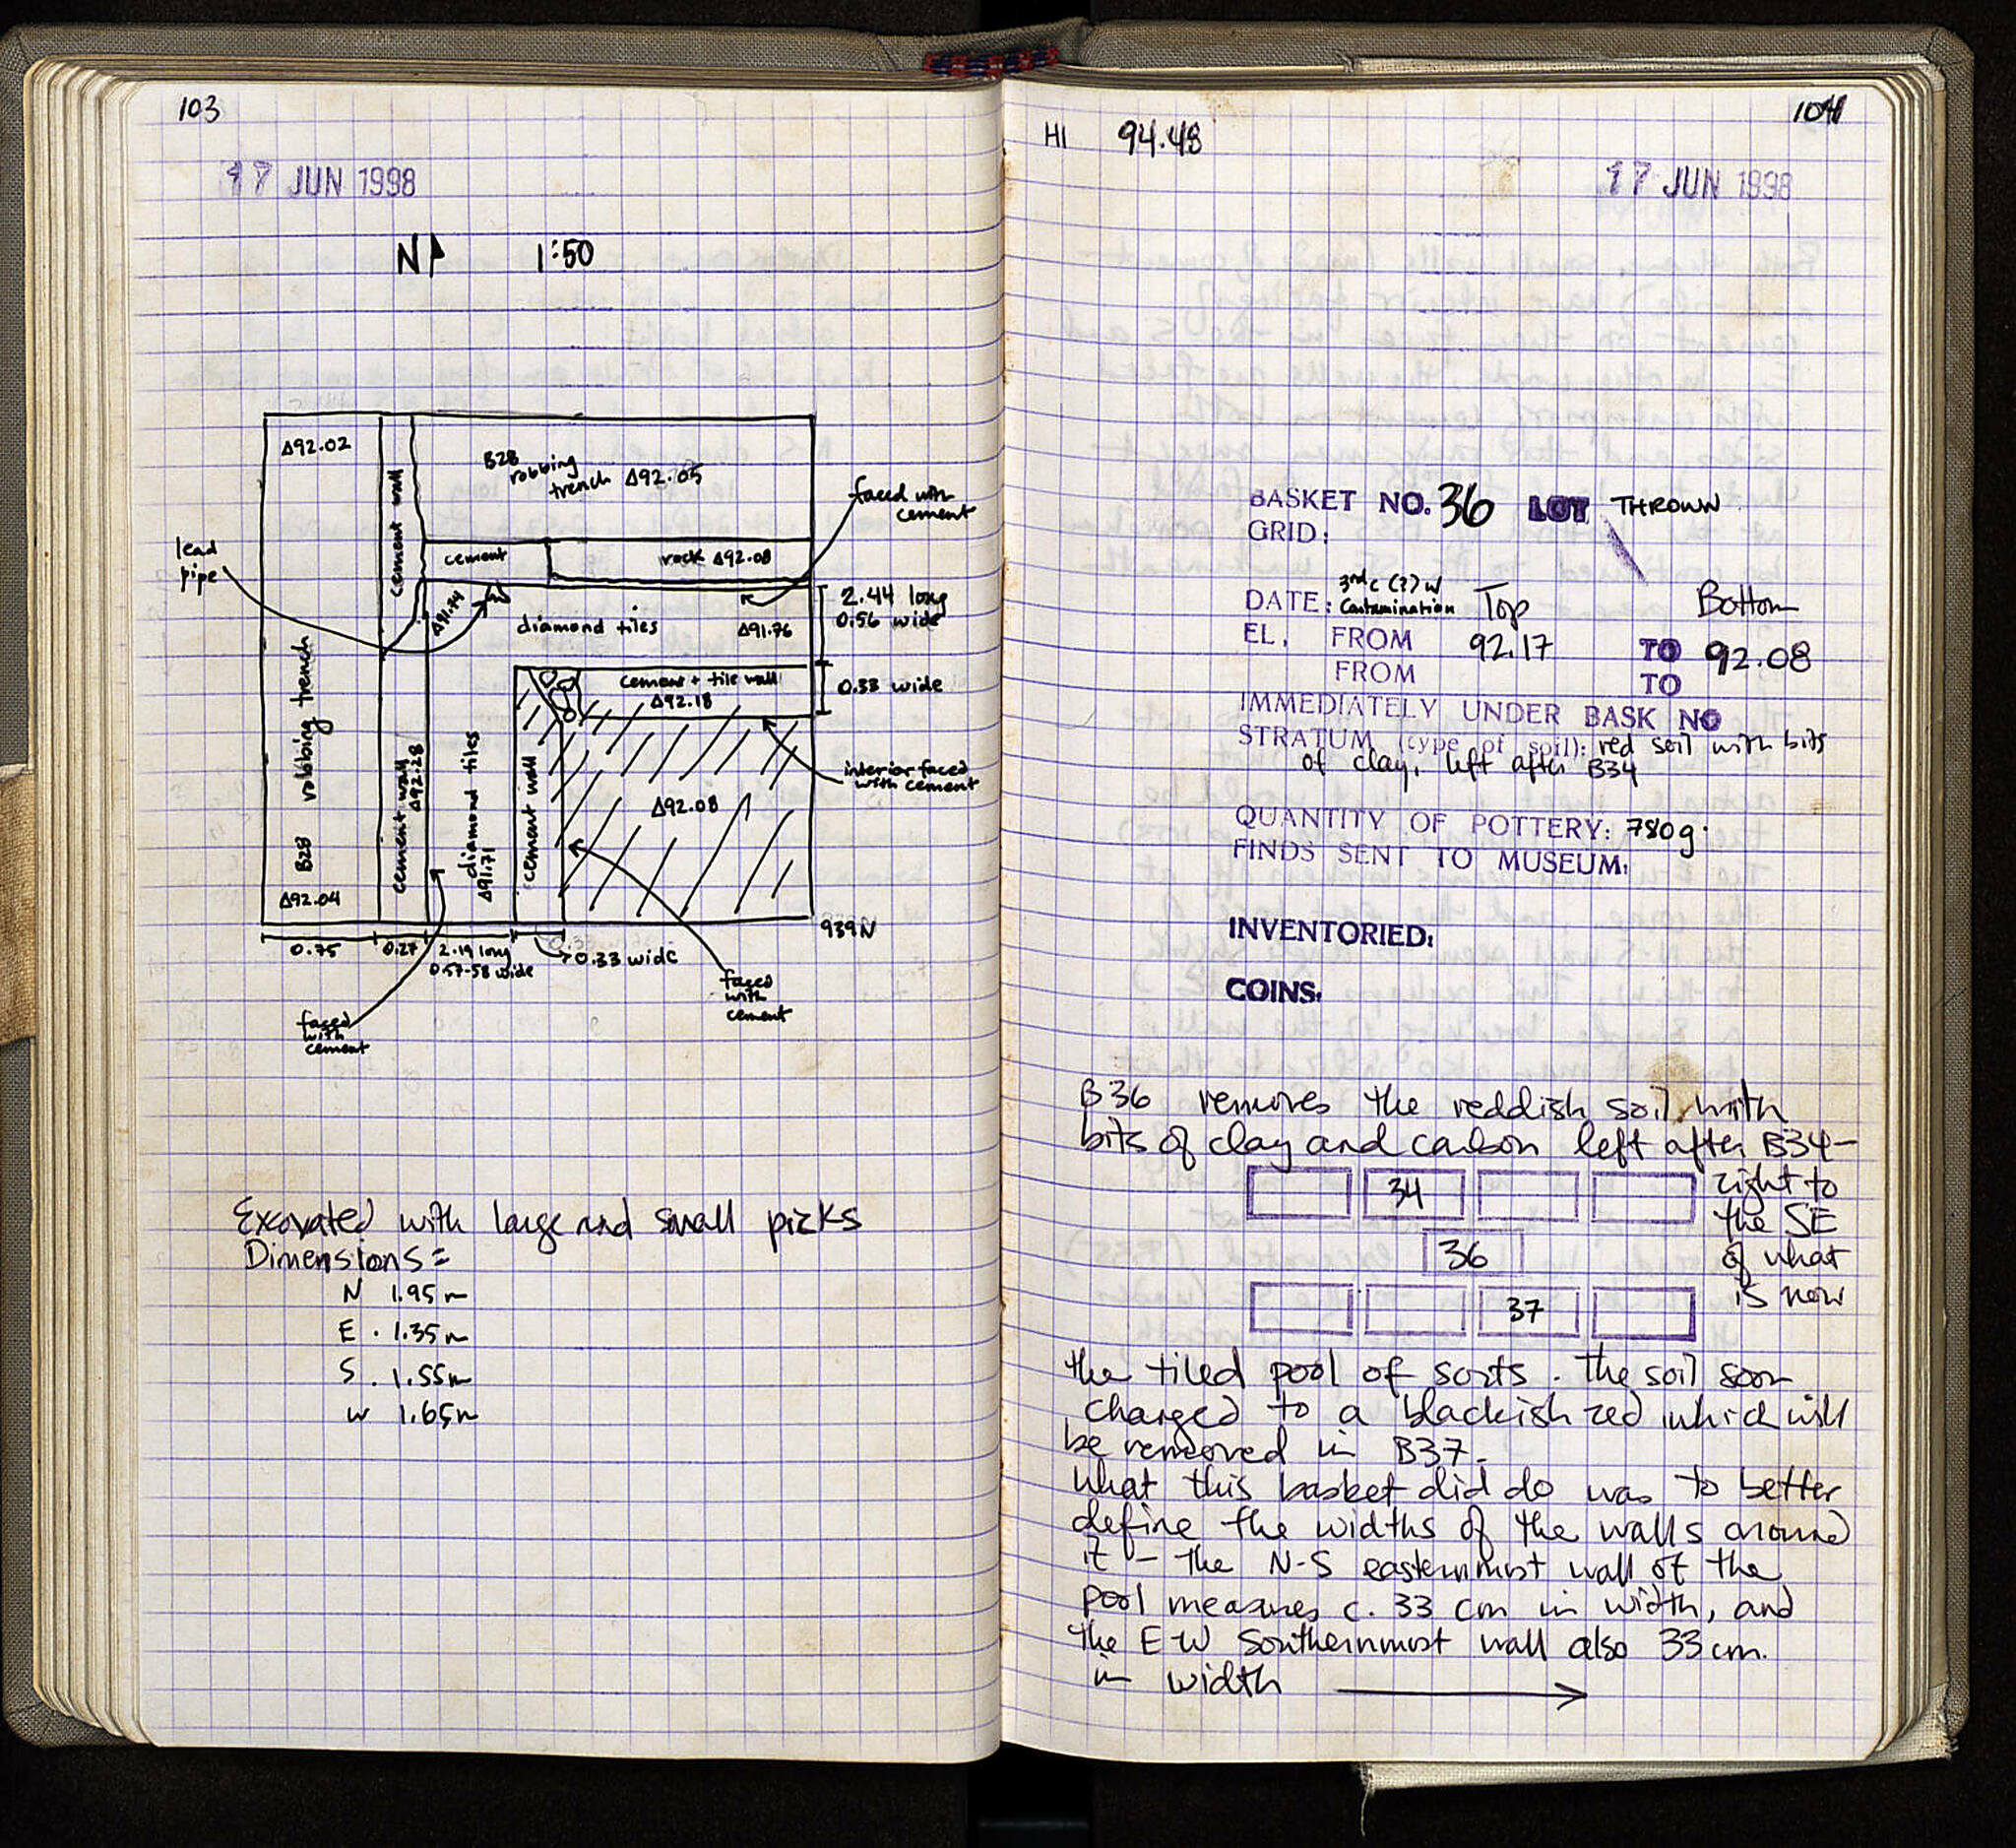 103
17 JUN 1998
N 1:50
Δ92.02
cement wall
B28
robbing
trench Δ92.05
faced with
cement
lead
pipe
cement
rock Δ92.08
Δ91.74
diamond tiles
Δ91.76
2.44 long
0.56 wide
cement + tile wall
Δ92.18
0.33 wide
B28 robbing trench
cement wall
Δ92.28
diamond tiles
Δ91.71
cement wall
Δ92.08
interior faced
with cement
Δ92.04
939N
0.75
0.27
2.19 long
0.57-58 wide
0.33 wide
faced
with
cement
faced
with
cement
Excavated with large and small picks
Dimensions =
N 1.95m
E . 1.35m
S . 1.55m
W 1.65m
104
HI 94.48
17 JUN 1998
BASKET NO. 36 LOT THROWN
GRID:
3rd c (?) w/
DATE: Contamination Top Bottom
EL. FROM 92.17 TO 92.08
FROM TO
IMMEDIATELY UNDER BASK NO
STRATUM (type of soil): red soil with bits
of clay, left after B34
QUANTITY OF POTTERY: 780g.
FINDS SENT TO MUSEUM:
INVENTORIED:
COINS:
B36 removes the reddish soil with
bits of clay and carbon left after B34 –
34
right to
the SE
36
of what
is now
37
the tiled pool of sorts. The soil soon
changed to a blackish red which will
be removed in B37.
What this basket did do was to better
define the widths of the walls around
it – the N-S easternmost wall of the
pool measures c. 33 cm in width, and
the E-W southernmost wall also 33 cm.
in width →